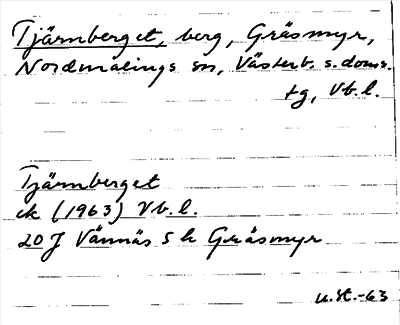 Tjärnberget, berg, Gräsmyr,
Nordmalings sn, Västerb. s. doms.
tg, Vb. l.
Tjärnberget
ek (1963) Vb. l.
20 J Vännäs S k Gräsmyr
u.st.-63